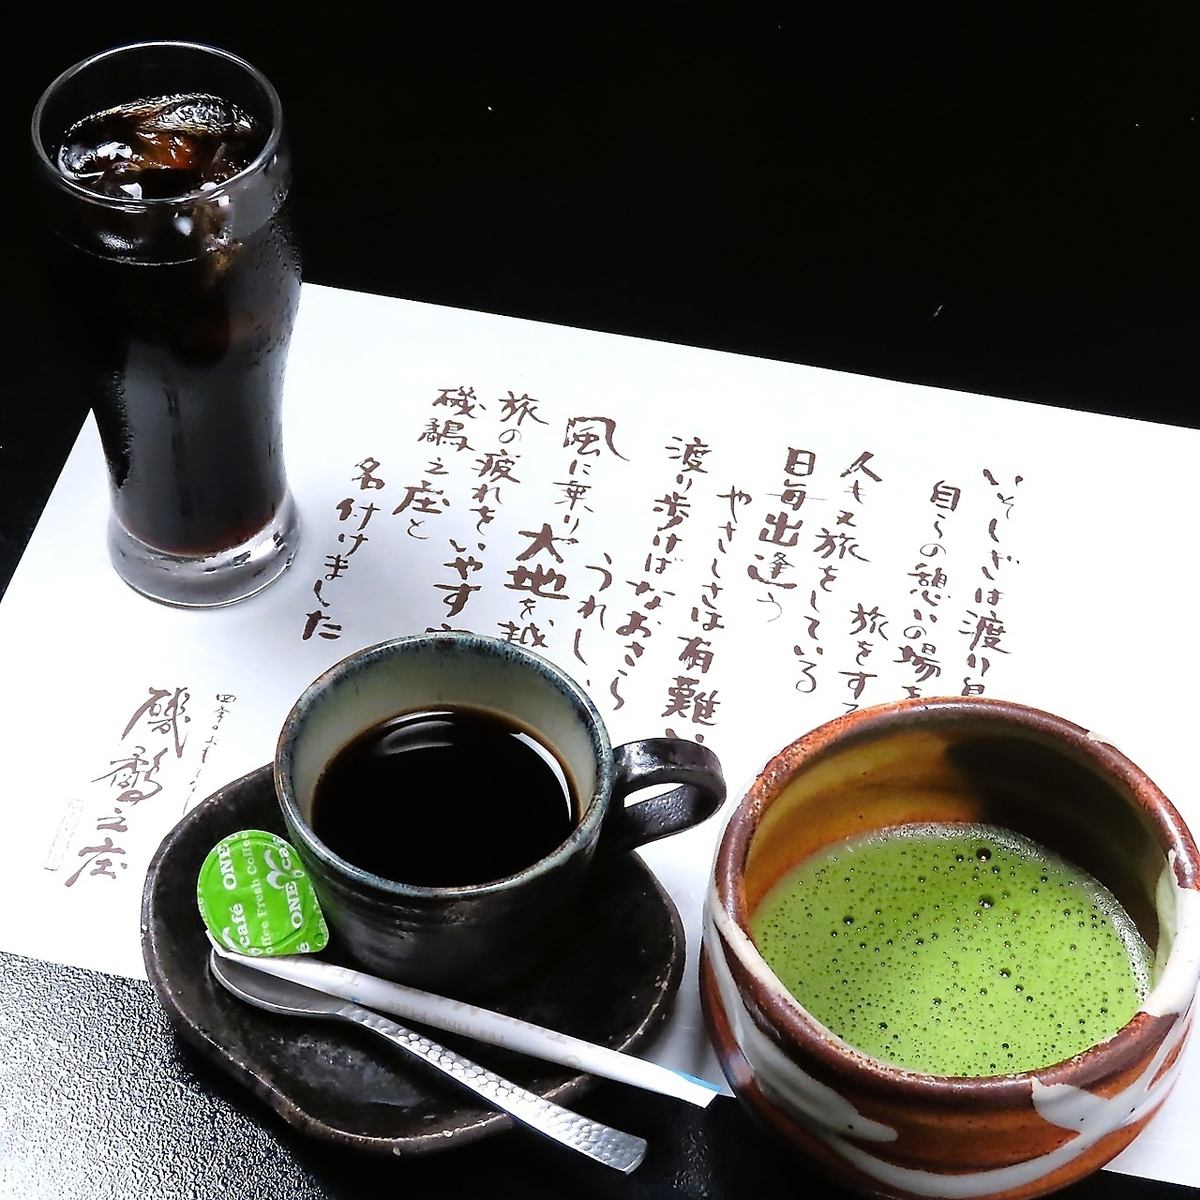 いそしぎは渡り鳥
自らの憩いの場を
人も又旅をしている
旅をす
日毎出逢う
やさしさは有難い
渡り歩けばなおさら
うれしい
風に乗り大地を越
旅の疲れをいやす宿
磯鷸之庄と
名付けました
四季のおもてなし
磯鷸之庄
café ONE
Coffee Fresh Coffee
ONE café